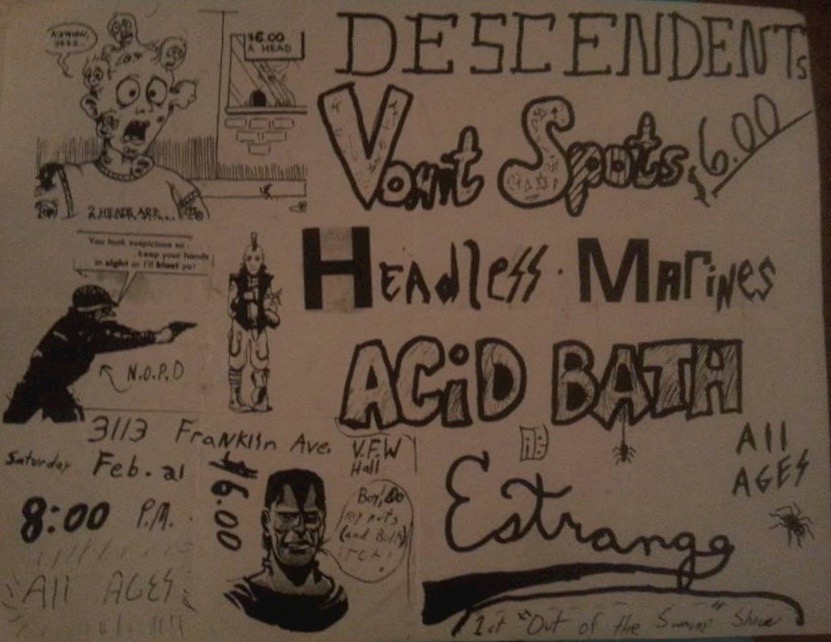 $6.00
A HEAD
2 HEADS ARE....
DESCENDENTS
Vomit Spots
$6.00
You look suspicious so
keep your hands
in sight or I'll blast ya!
N.O.P.D
Headless Marines
ACiD BATH
3113 Franklin Ave.
V.F.W
Hall
Saturday Feb. 21
8:00 P.M.
All AGES
$6.00
Boy, Do
my nuts
(and Bolts)
itch!
All
AGES
Estrange
1st "Out of the Swamp" Show